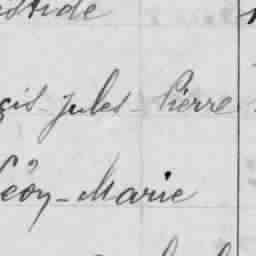 gis - Jules - Pierre
Léon - Marie